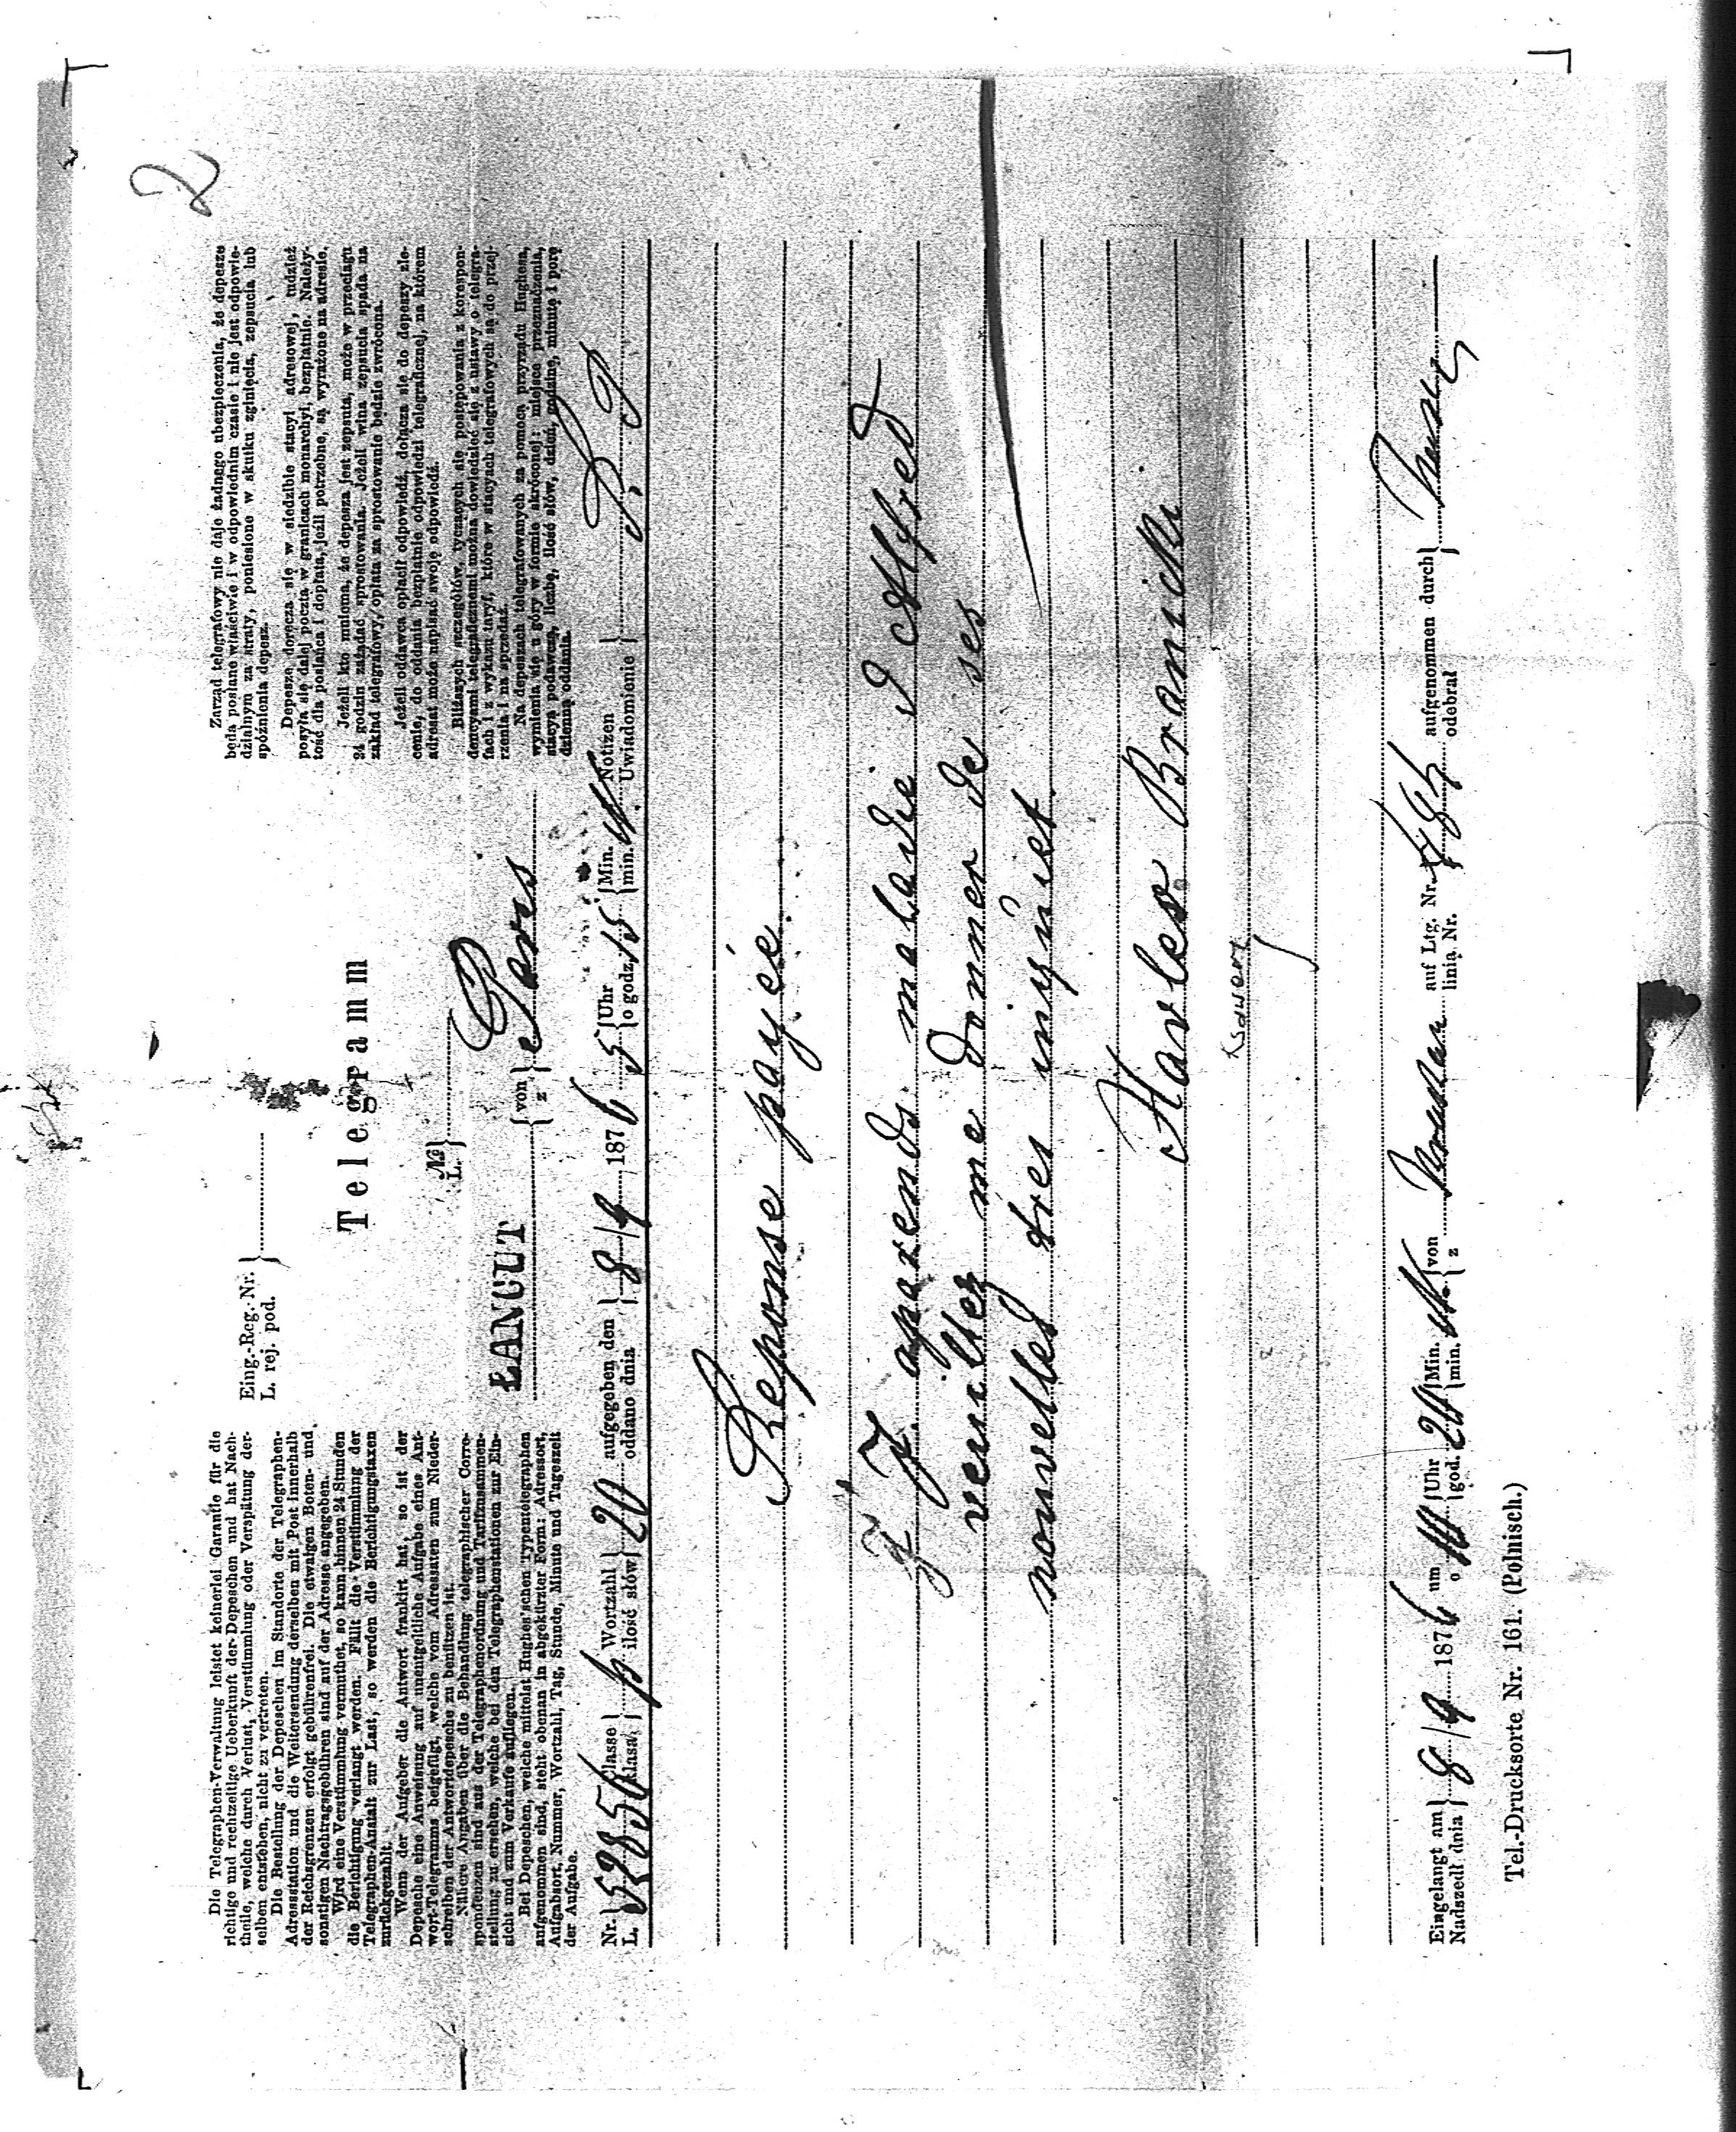 2
Eing.-Reg.-Nr.
L. rej. pod.
Telegramm
№
L.
ŁAŃCUT von z Paris
Die Telegraphen-Verwaltung leistet keinerlei Garantie für die
richtige und rechtzeitige Ueberkunft der Depeschen und hat Nach-
theile, welche durch Verlust, Verstümmlung oder Verspätung der-
selben entstehen, nicht zu vertreten.
Die Bestellung der Depeschen im Standorte der Telegraphen-
Adressstation und die Weitersendung derselben mit Post innerhalb
der Reichsgrenzen erfolgt gebührenfrei. Die etwaigen Boten- und
sonstigen Nachtragsgebühren sind auf der Adresse angegeben.
Wird eine Verstümmlung vermuthet, so kann binnen 24 Stunden
die Berichtigung verlangt werden. Fällt die Verstümmlung der
Telegraphen-Anstalt zur Last, so werden die Berichtigungstaxen
zurückgezahlt.
Wenn der Aufgeber die Antwort frankirt hat, so ist der
Depesche eine Anweisung auf unentgeltliche Aufgabe eines Ant-
wort-Telegramms beigefügt, welche vom Adressaten zum Nieder-
schreiben der Antwortdepesche zu benützen ist.
Nähere Angaben über die Behandlung telegraphischer Corre-
spondenzen sind aus der Telegraphenordnung und Tarifzusammen-
stellung zu ersehen, welche bei den Telegraphenstationen zur Ein-
sicht und zum Verkaufe aufliegen.
Bei Depeschen, welche mittelst Hughes'schen Typentelegraphen
aufgenommen sind, steht obenan in abgekürzter Form: Adressort,
Aufgabsort, Nummer, Wortzahl, Tag, Stunde, Minute und Tageszeit
der Aufgabe.
Zarząd telegrafowy nie daje żadnego ubezpieczenia, że depesze
będą posłane właściwie i w odpowiednim czasie i nie jest odpowie-
dzialnym za straty, poniesione w skutku zginięcia, zepsucia lub
spóźnienia depesz.
Depesze doręcza się w siedzibie stacyi adresowej, tudzież
posyła się dalej pocztą w granicach monarchyi, bezpłatnie. Należy-
tość dla posłańca i dopłata, jeźli potrzebne, są wyrażone na adresie.
Jeżeli kto mniema, że depesza jest zepsuta, może w przeciągu
24 godzin zażądać sprostowania. Jeżeli wina zepsucia spada na
zakład telegrafowy, opłata za sprostowanie będzie zwrócona.
Jeżeli oddawca opłacił odpowiedź, dołącza się do depeszy zle-
cenie, do oddania bezpłatnie odpowiedzi telegraficznej, na którem
adresat może napisać swoję odpowiedź.
Bliższych szczegółów, tyczących się postępowania z korespon-
dencyami telegraficznemi można dowiedzieć się z ustawy o telegra-
fach i z wykazu taryf, które w stacyach telegrafowych są do przej-
rzenia i na sprzedaż.
Na depeszach telegrafowanych za pomocą przyrządu Hughesa,
wymienia się u góry w formie skróconej: miejsce przeznaczenia,
stacyą podawczą, liczbę, ilość słów, dzień, godzinę, minutę i porę
dzienną oddania.
Nr. L. 52856 Classe klasa p Wortzahl ilość słów 20 aufgegeben den oddano dnia 8/9 1876 5 Uhr o godz. 15 Min. min. Notizen Uwiadomienie
Reponse payée
J' J. aparends maladie d Alfred
veuillez me donner de ses
nouvelles tres inquiet
Havler Branicki
Ksawery
Eingelangt am Nadszedł dnia 8/9 1876 um o 10 Uhr god. 20 Min. min. von z auf Ltg. Nr. linią Nr. aufgenommen durch odebrał
Tel.-Drucksorte Nr. 161. (Polnisch.)